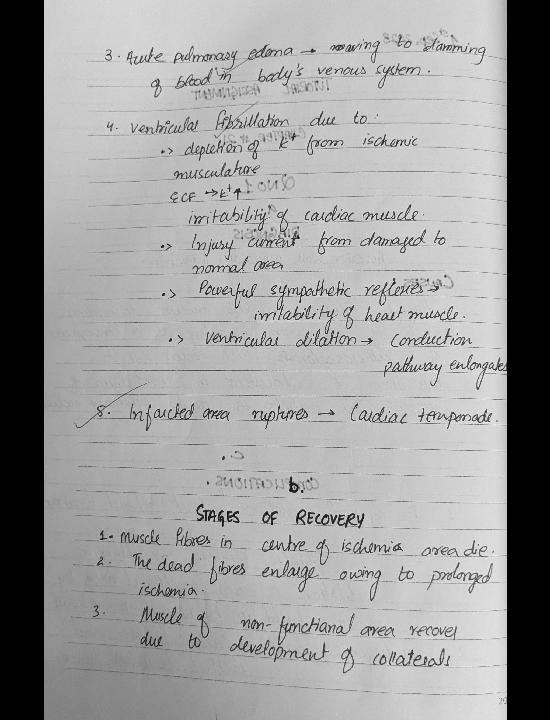 3. Acute pulmonary edema → owing to damming
of blood in body's venous system.
4. Ventricular fibrillation due to:
•> depletion of K+ from ischemic
musculature
ECF → K+↑
irritability of cardiac muscle.
•> Injury current from damaged to
normal area
•> Powerful sympathetic reflexes →
irritability of heart muscle.
•> Ventricular dilation → Conduction
pathway enlongates
8. Infarcted area ruptures → Cardiac temponade.
b.
STAGES OF RECOVERY
1. Muscle fibres in centre of ischemia area die.
2. The dead fibres enlarge owing to prolonged
ischemia.
3. Muscle of non-functional area recover
due to development of collaterals